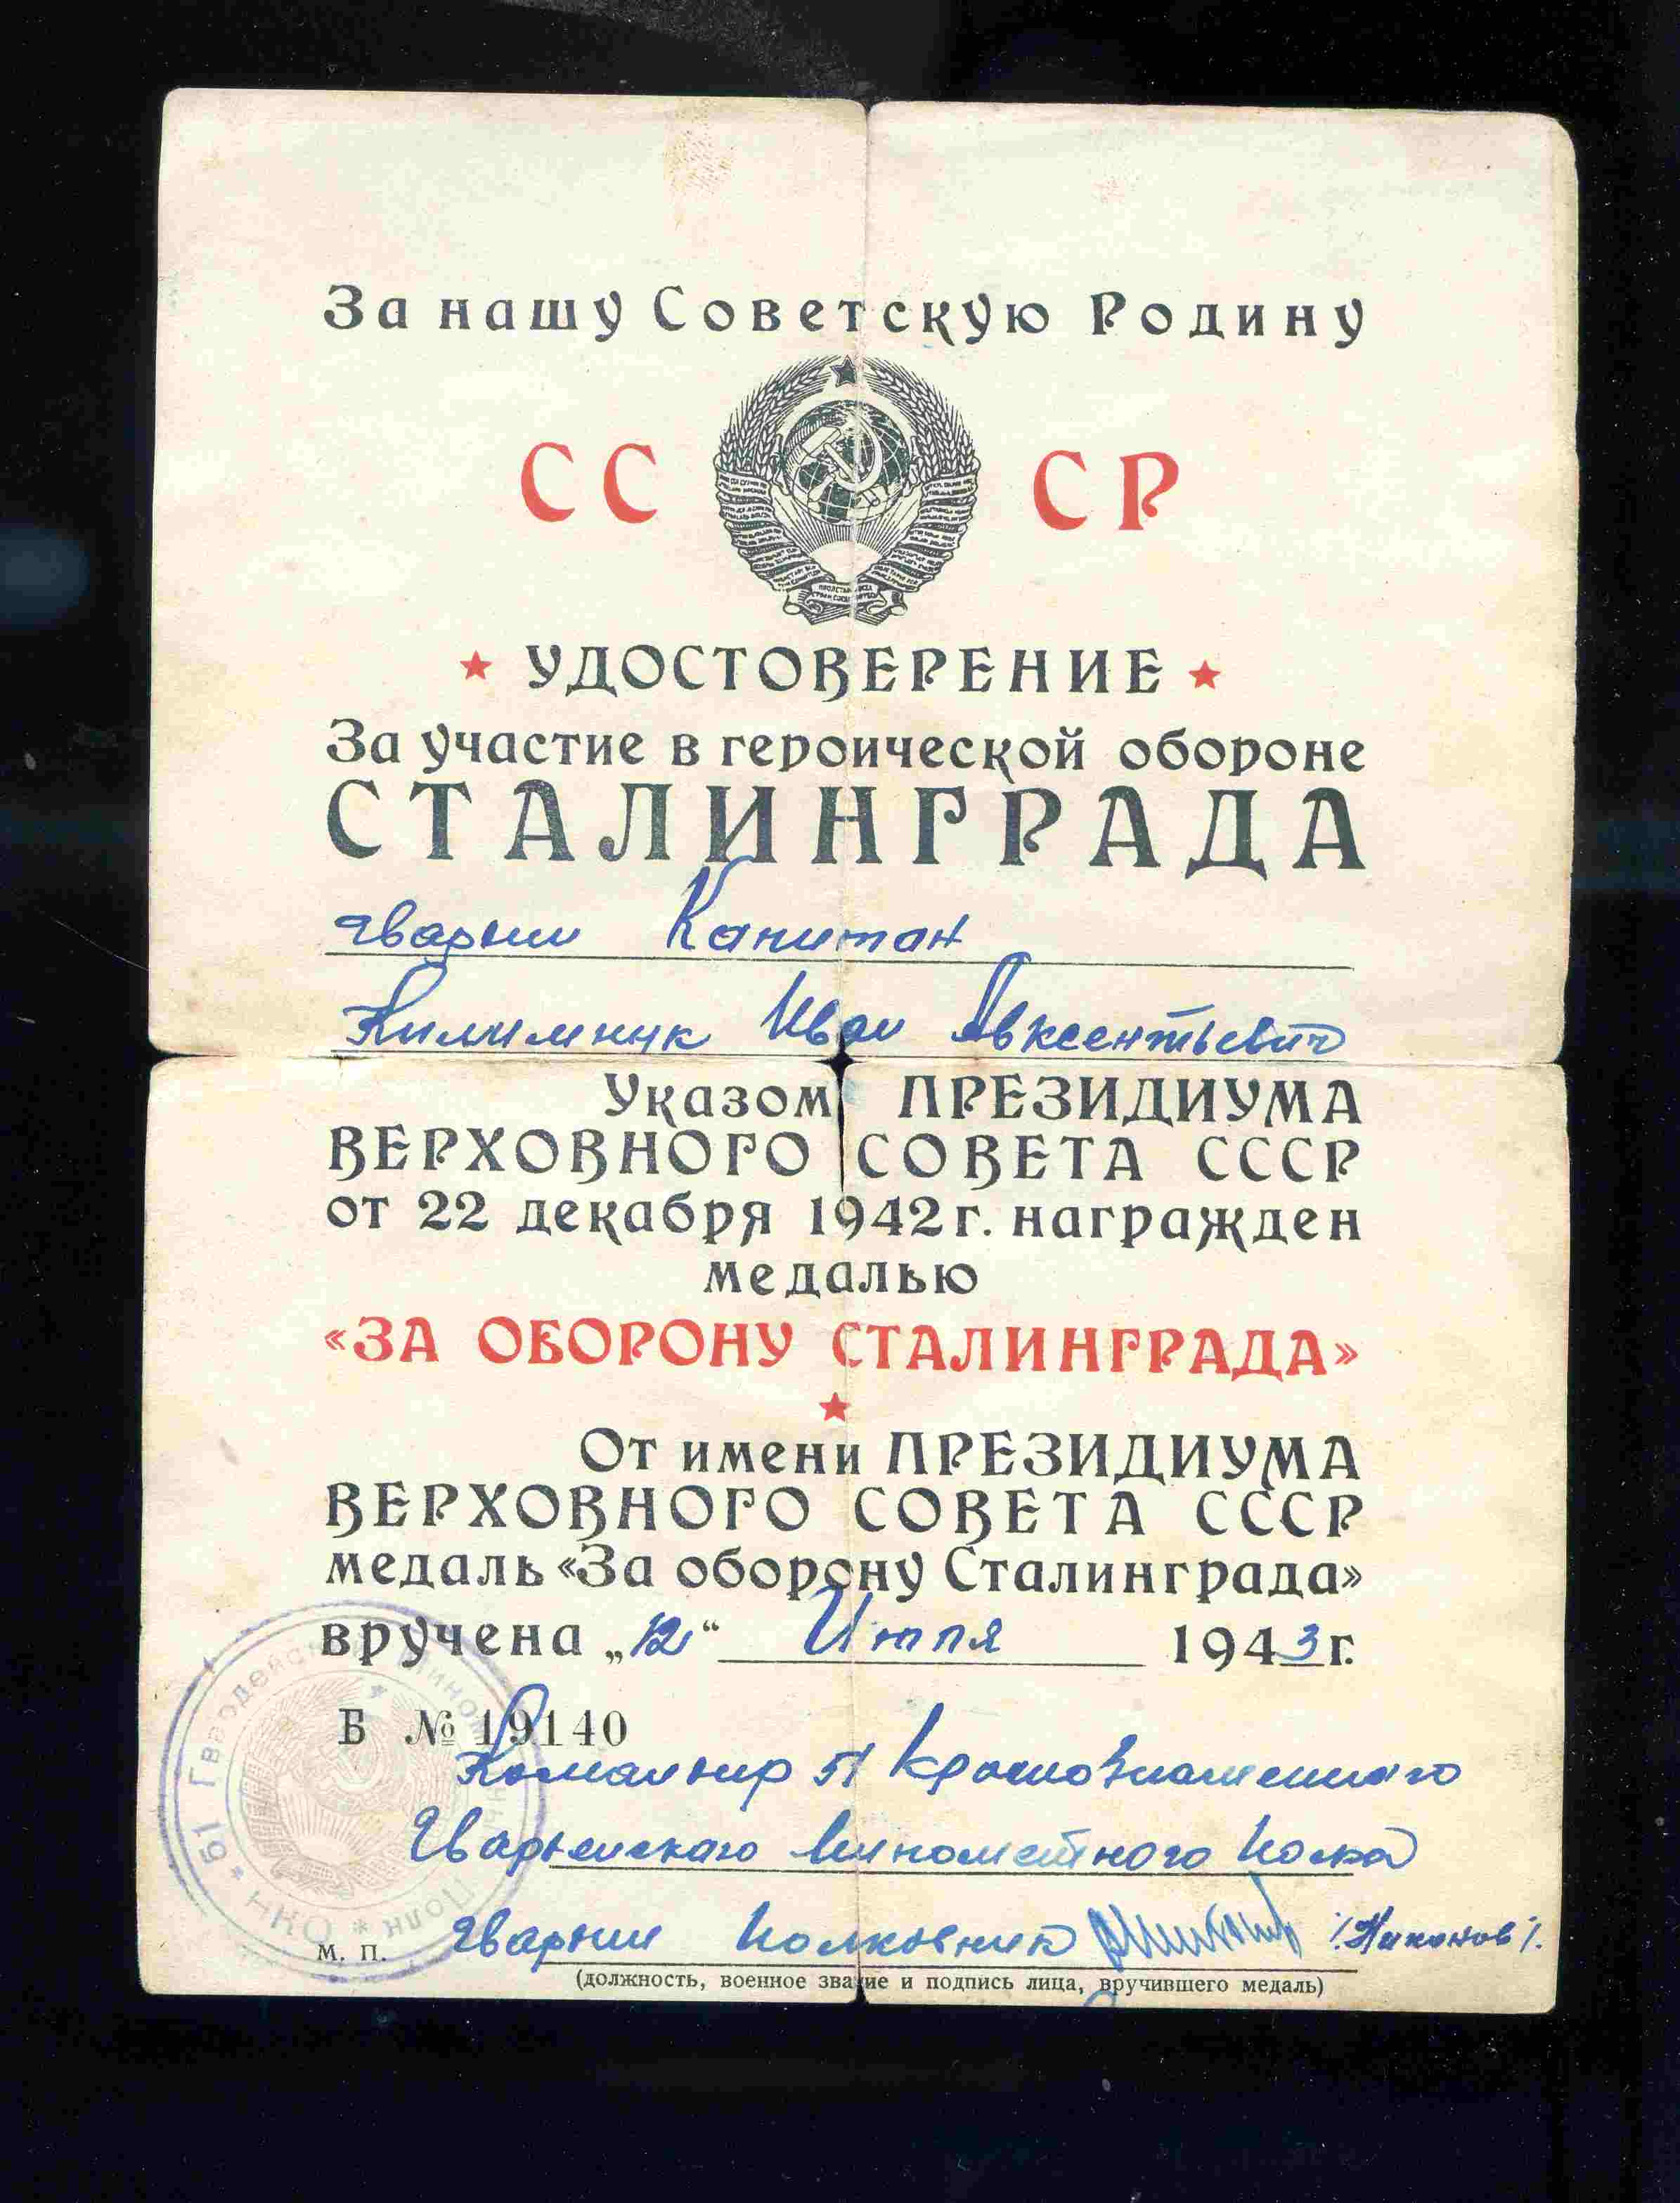 За нашу Советскую Родину
СС СР
УДОСТОВЕРЕНИЕ
За участие в героической обороне
СТАЛИНГРАДА
гвардии Капитан
Килимнук Иван Авксентьевич
Указом ПРЕЗИДИУМА
ВЕРХОВНОГО СОВЕТА СССР
от 22 декабря 1942 г. награжден
медалью
«ЗА ОБОРОНУ СТАЛИНГРАДА»
От имени ПРЕЗИДИУМА
ВЕРХОВНОГО СОВЕТА СССР
медаль «За оборону Сталинграда»
вручена „12“ Июля 1943 г.
Б № 19140
Командир 51 Краснознаменного
Гвардейского Минометного Полка
гвардии Полковник /Никонов/.
М. П.
(должность, военное звание и подпись лица, вручившего медаль)
51 Гвардейский Полк * НКО *